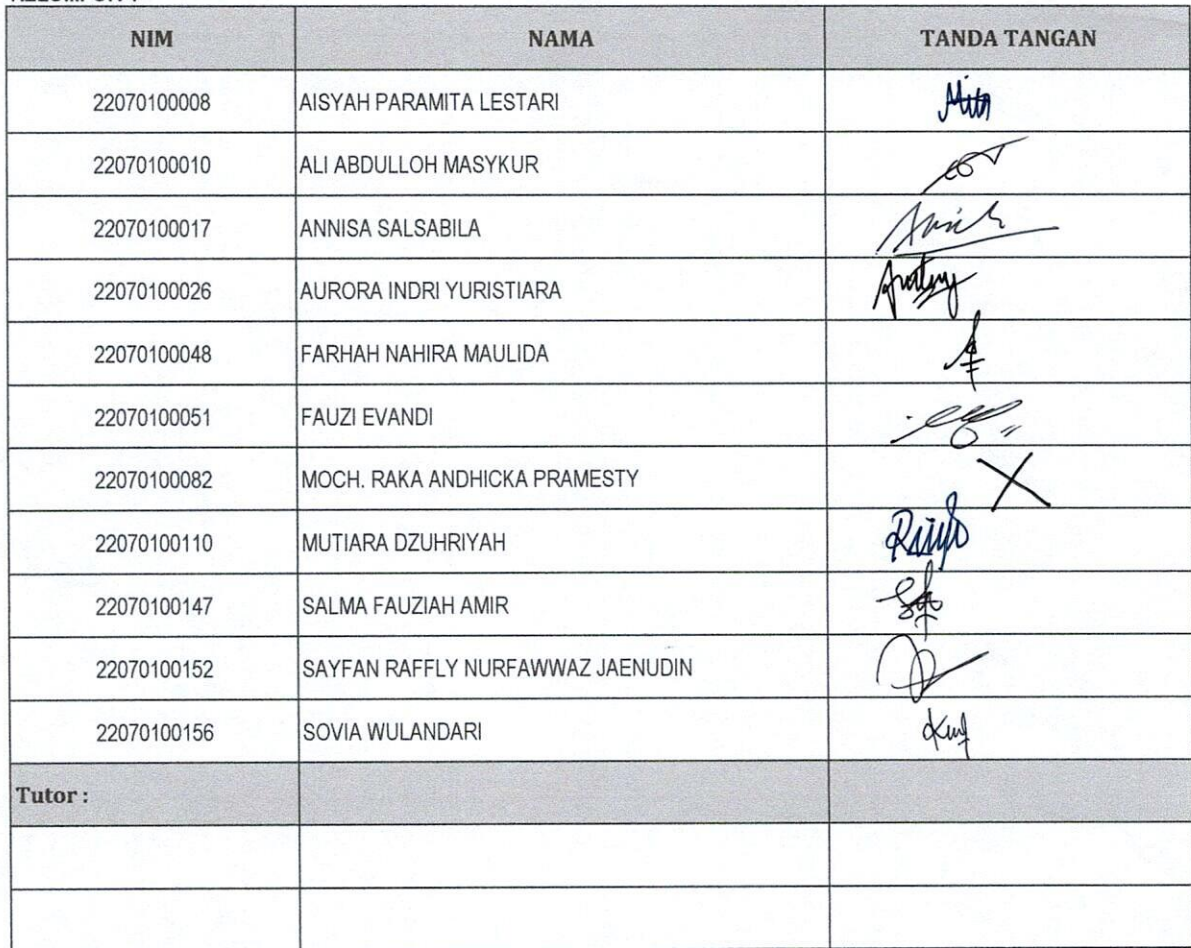 NIM NAMA TANDA TANGAN
22070100008 AISYAH PARAMITA LESTARI
22070100010 ALI ABDULLOH MASYKUR
22070100017 ANNISA SALSABILA
22070100026 AURORA INDRI YURISTIARA
22070100048 FARHAH NAHIRA MAULIDA
22070100051 FAUZI EVANDI
22070100082 MOCH. RAKA ANDHICKA PRAMESTY X
22070100110 MUTIARA DZUHRIYAH
22070100147 SALMA FAUZIAH AMIR
22070100152 SAYFAN RAFFLY NURFAWWAZ JAENUDIN
22070100156 SOVIA WULANDARI
Tutor :